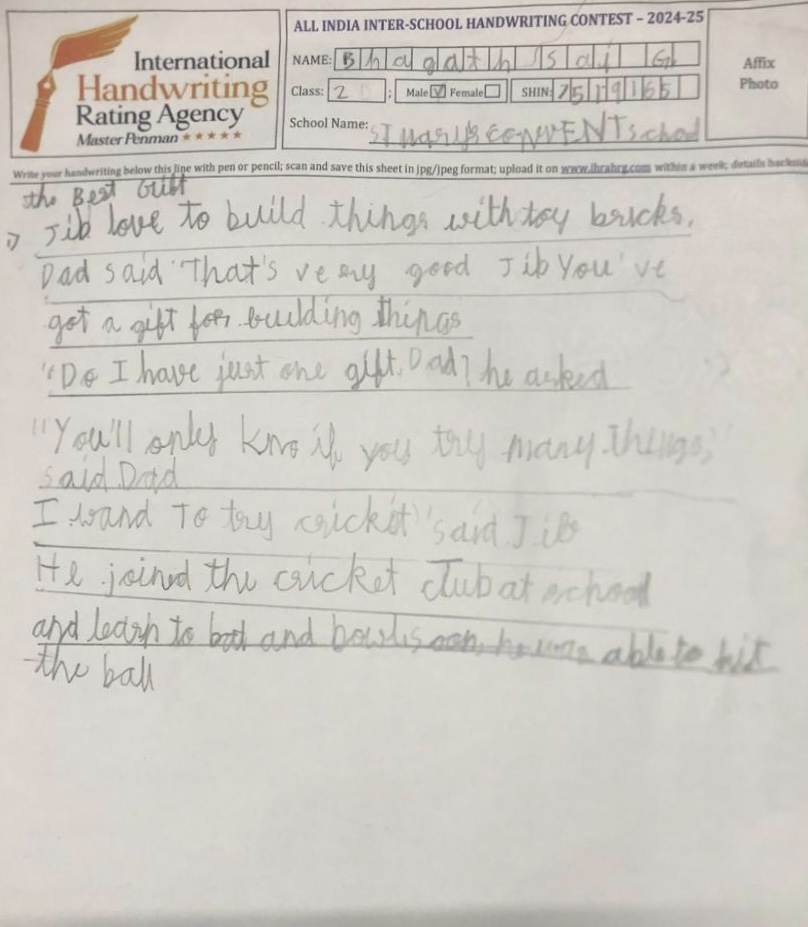 International
Handwriting
Rating Agency
Master Penman ★★★★★
ALL INDIA INTER-SCHOOL HANDWRITING CONTEST – 2024-25
NAME: Bhagath Sai G
Class: 2 ; Male ☑ Female ☐ SHIN: 7519165
School Name: ST Mary's CONVENT School
Affix
Photo
Write your handwriting below this line with pen or pencil; scan and save this sheet in jpg/jpeg format; upload it on www.ihrahrg.com within a week; details backside
the Best Gift
1) Jib love to build things with toy bricks.
Dad said "That's very good Jib You've
got a gift for building things
"Do I have just one gift, Dad? he asked
"You'll only kno if you try many things,"
said Dad
I wand To try cricket" said Jib
He joined the cricket club at school
and learn to bat and bowl soon, he was able to hit
the ball